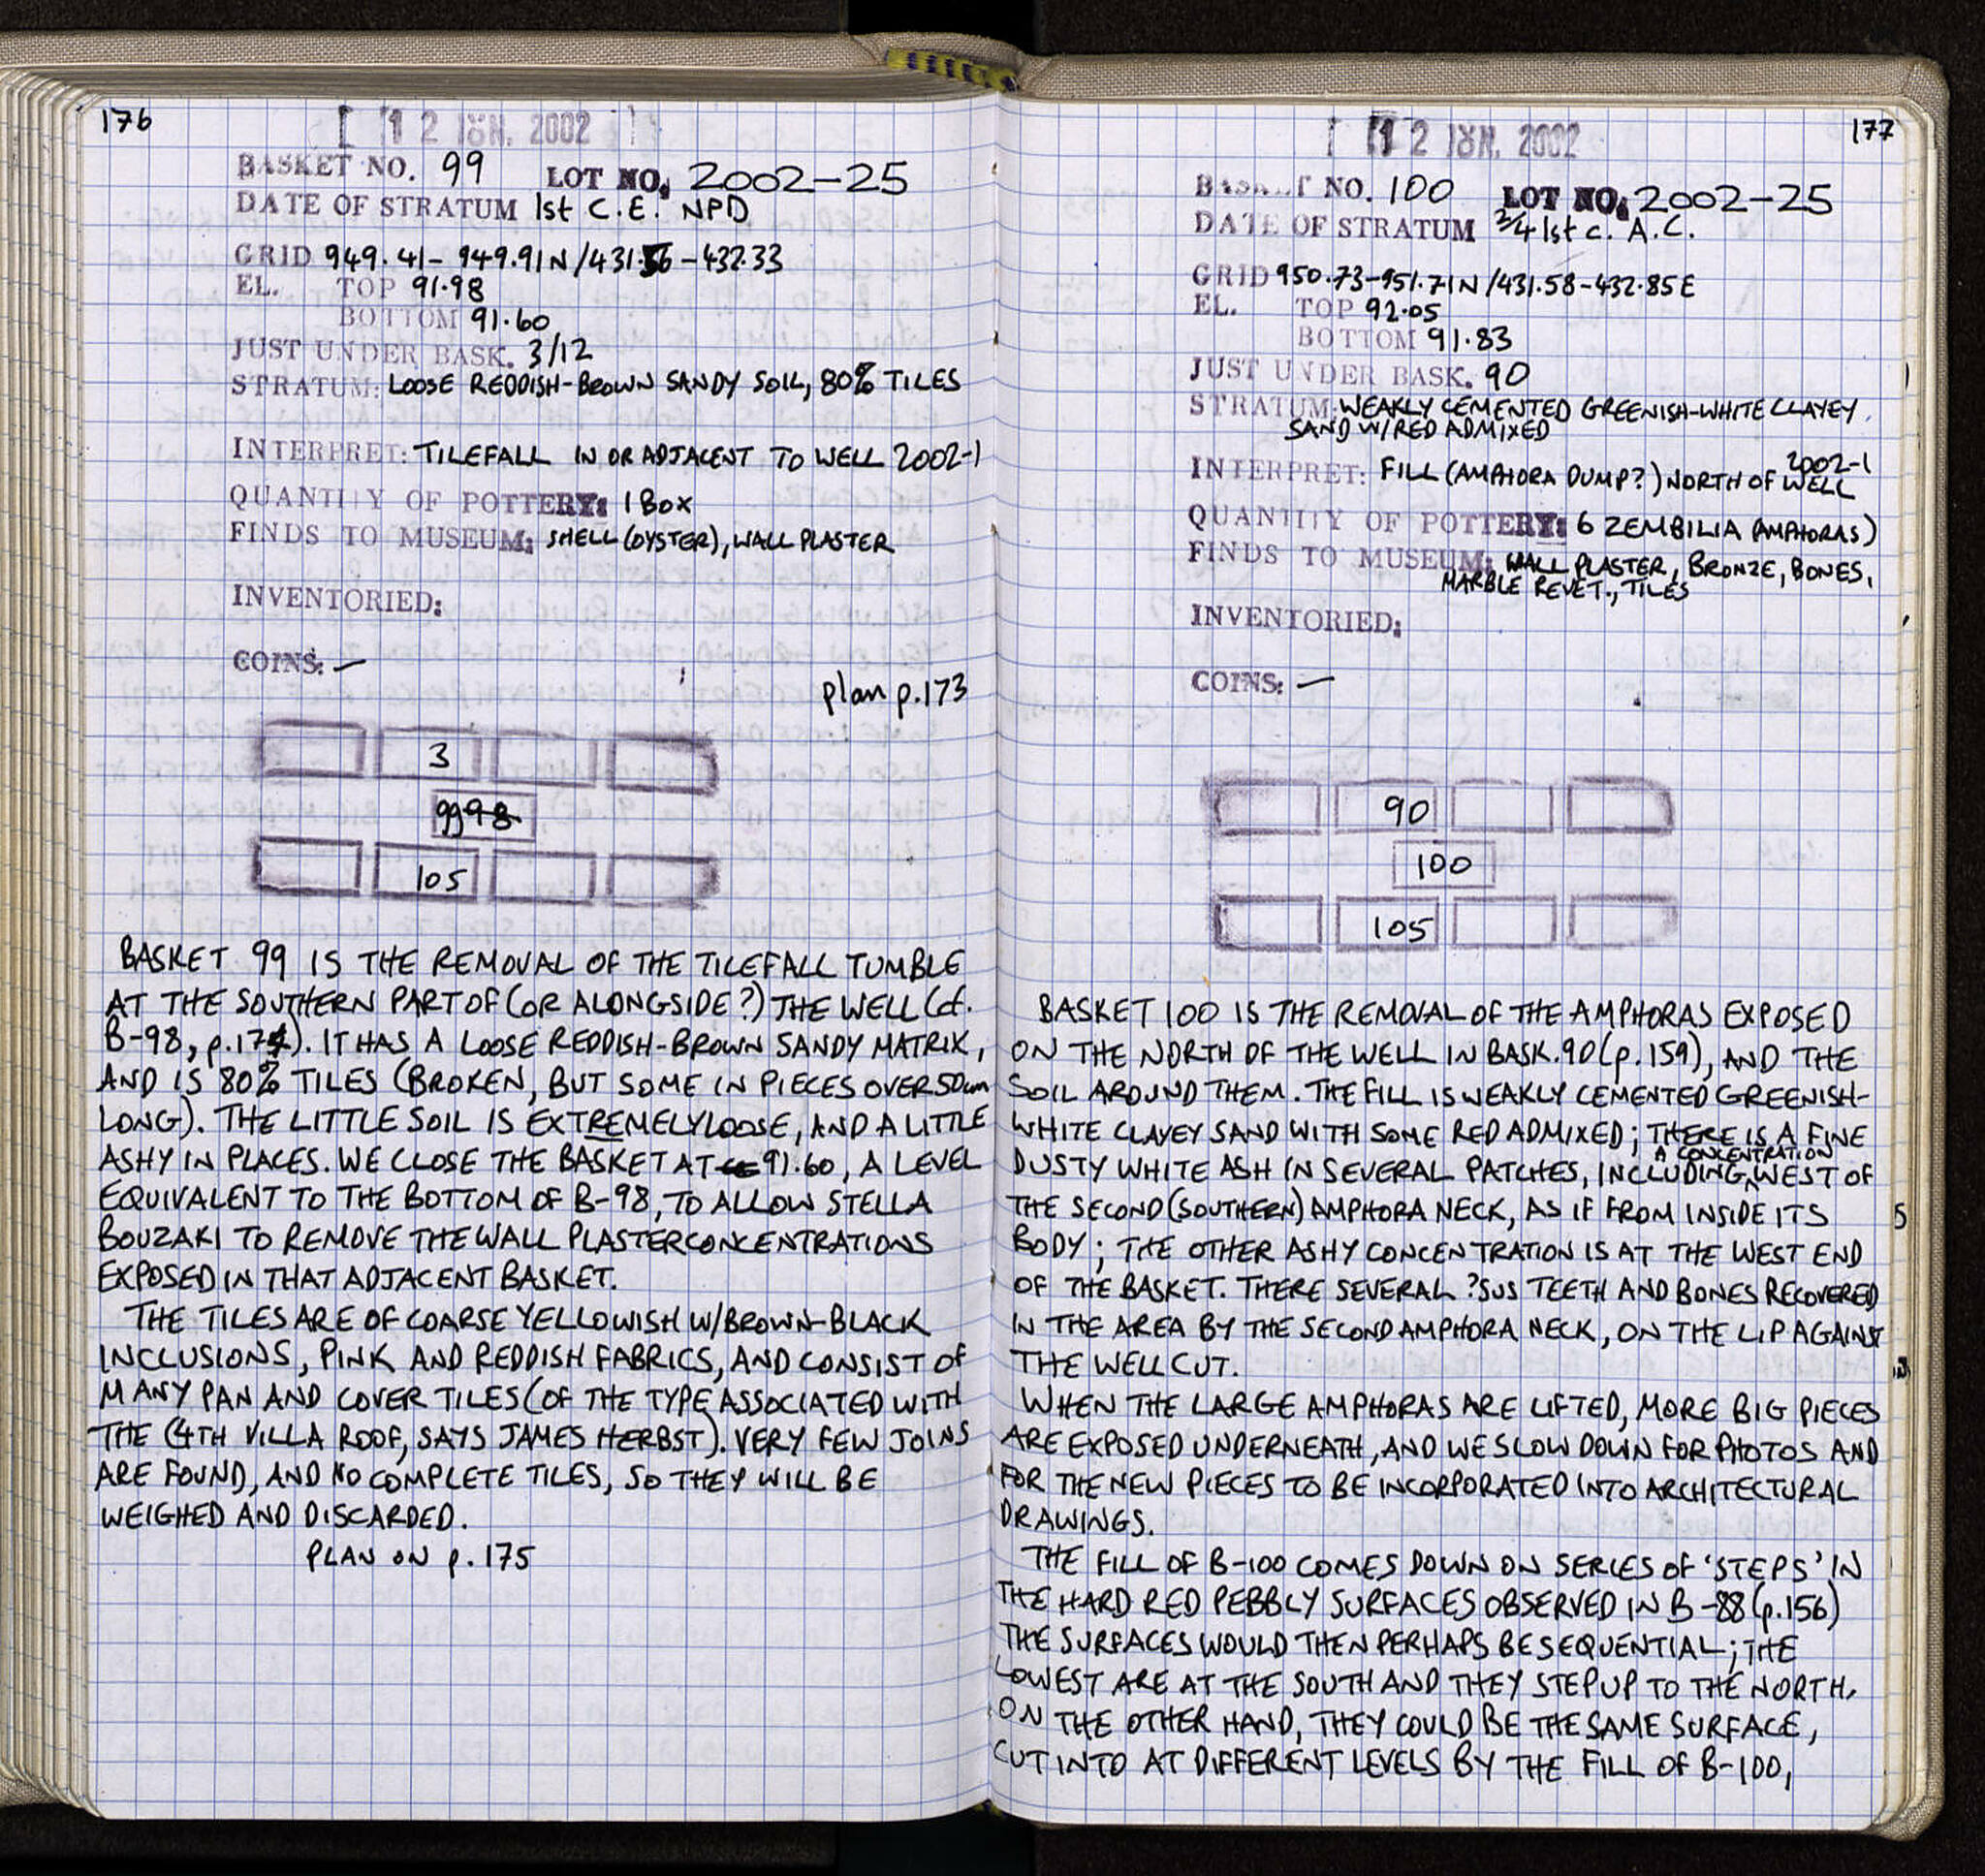 176
12 JUN. 2002
BASKET NO. 99 LOT NO. 2002-25
DATE OF STRATUM 1st C.E. NPD
GRID 949.41- 949.91N/431.56-432.33
EL. TOP 91.98
BOTTOM 91.60
JUST UNDER BASK. 3/12
STRATUM: LOOSE REDDISH-BROWN SANDY SOIL, 80% TILES
INTERPRET: TILEFALL IN OR ADJACENT TO WELL 2002-1
QUANTITY OF POTTERY: 1 BOX
FINDS TO MUSEUM: SHELL (OYSTER), WALL PLASTER
INVENTORIED:
COINS: —
plan p.173
3
99 98
105
BASKET 99 IS THE REMOVAL OF THE TILEFALL TUMBLE
AT THE SOUTHERN PART OF (OR ALONGSIDE?) THE WELL (cf.
B-98, p.174). IT HAS A LOOSE REDDISH-BROWN SANDY MATRIX,
AND IS 80% TILES (BROKEN, BUT SOME IN PIECES OVER 50cm
LONG). THE LITTLE SOIL IS EXTREMELY LOOSE, AND A LITTLE
ASHY IN PLACES. WE CLOSE THE BASKET AT 91.60, A LEVEL
EQUIVALENT TO THE BOTTOM OF B-98, TO ALLOW STELLA
BOUZAKI TO REMOVE THE WALL PLASTER CONCENTRATIONS
EXPOSED IN THAT ADJACENT BASKET.
THE TILES ARE OF COARSE YELLOWISH W/BROWN-BLACK
INCLUSIONS, PINK AND REDDISH FABRICS, AND CONSIST OF
MANY PAN AND COVER TILES (OF THE TYPE ASSOCIATED WITH
THE C4TH VILLA ROOF, SAYS JAMES HERBST). VERY FEW JOINS
ARE FOUND, AND NO COMPLETE TILES, SO THEY WILL BE
WEIGHED AND DISCARDED.
PLAN ON p. 175
177
12 JUN. 2002
BASKET NO. 100 LOT NO. 2002-25
DATE OF STRATUM 3/4 1st c. A.C.
GRID 950.73-951.71N/431.58-432.85E
EL. TOP 92.05
BOTTOM 91.83
JUST UNDER BASK. 90
STRATUM: WEAKLY CEMENTED GREENISH-WHITE CLAYEY
SAND W/RED ADMIXED
INTERPRET: FILL (AMPHORA DUMP?) NORTH OF WELL 2002-1
QUANTITY OF POTTERY: 6 ZEMBILIA (AMPHORAS)
FINDS TO MUSEUM: WALL PLASTER, BRONZE, BONES,
MARBLE REVET., TILES
INVENTORIED:
COINS: —
90
100
105
BASKET 100 IS THE REMOVAL OF THE AMPHORAS EXPOSED
ON THE NORTH OF THE WELL IN BASK. 90 (p.159), AND THE
SOIL AROUND THEM. THE FILL IS WEAKLY CEMENTED GREENISH-
WHITE CLAYEY SAND WITH SOME RED ADMIXED; THERE IS A FINE
DUSTY WHITE ASH IN SEVERAL PATCHES, INCLUDING A CONCENTRATION WEST OF
THE SECOND (SOUTHERN) AMPHORA NECK, AS IF FROM INSIDE ITS
BODY; THE OTHER ASHY CONCENTRATION IS AT THE WEST END
OF THE BASKET. THERE SEVERAL ?SUS TEETH AND BONES RECOVERED
IN THE AREA BY THE SECOND AMPHORA NECK, ON THE LIP AGAINST
THE WELL CUT.
WHEN THE LARGE AMPHORAS ARE LIFTED, MORE BIG PIECES
ARE EXPOSED UNDERNEATH, AND WE SLOW DOWN FOR PHOTOS AND
FOR THE NEW PIECES TO BE INCORPORATED INTO ARCHITECTURAL
DRAWINGS.
THE FILL OF B-100 COMES DOWN ON SERIES OF 'STEPS' IN
THE HARD RED PEBBLY SURFACES OBSERVED IN B-88 (p.156)
THE SURFACES WOULD THEN PERHAPS BE SEQUENTIAL; THE
LOWEST ARE AT THE SOUTH AND THEY STEP UP TO THE NORTH.
ON THE OTHER HAND, THEY COULD BE THE SAME SURFACE,
CUT INTO AT DIFFERENT LEVELS BY THE FILL OF B-100,